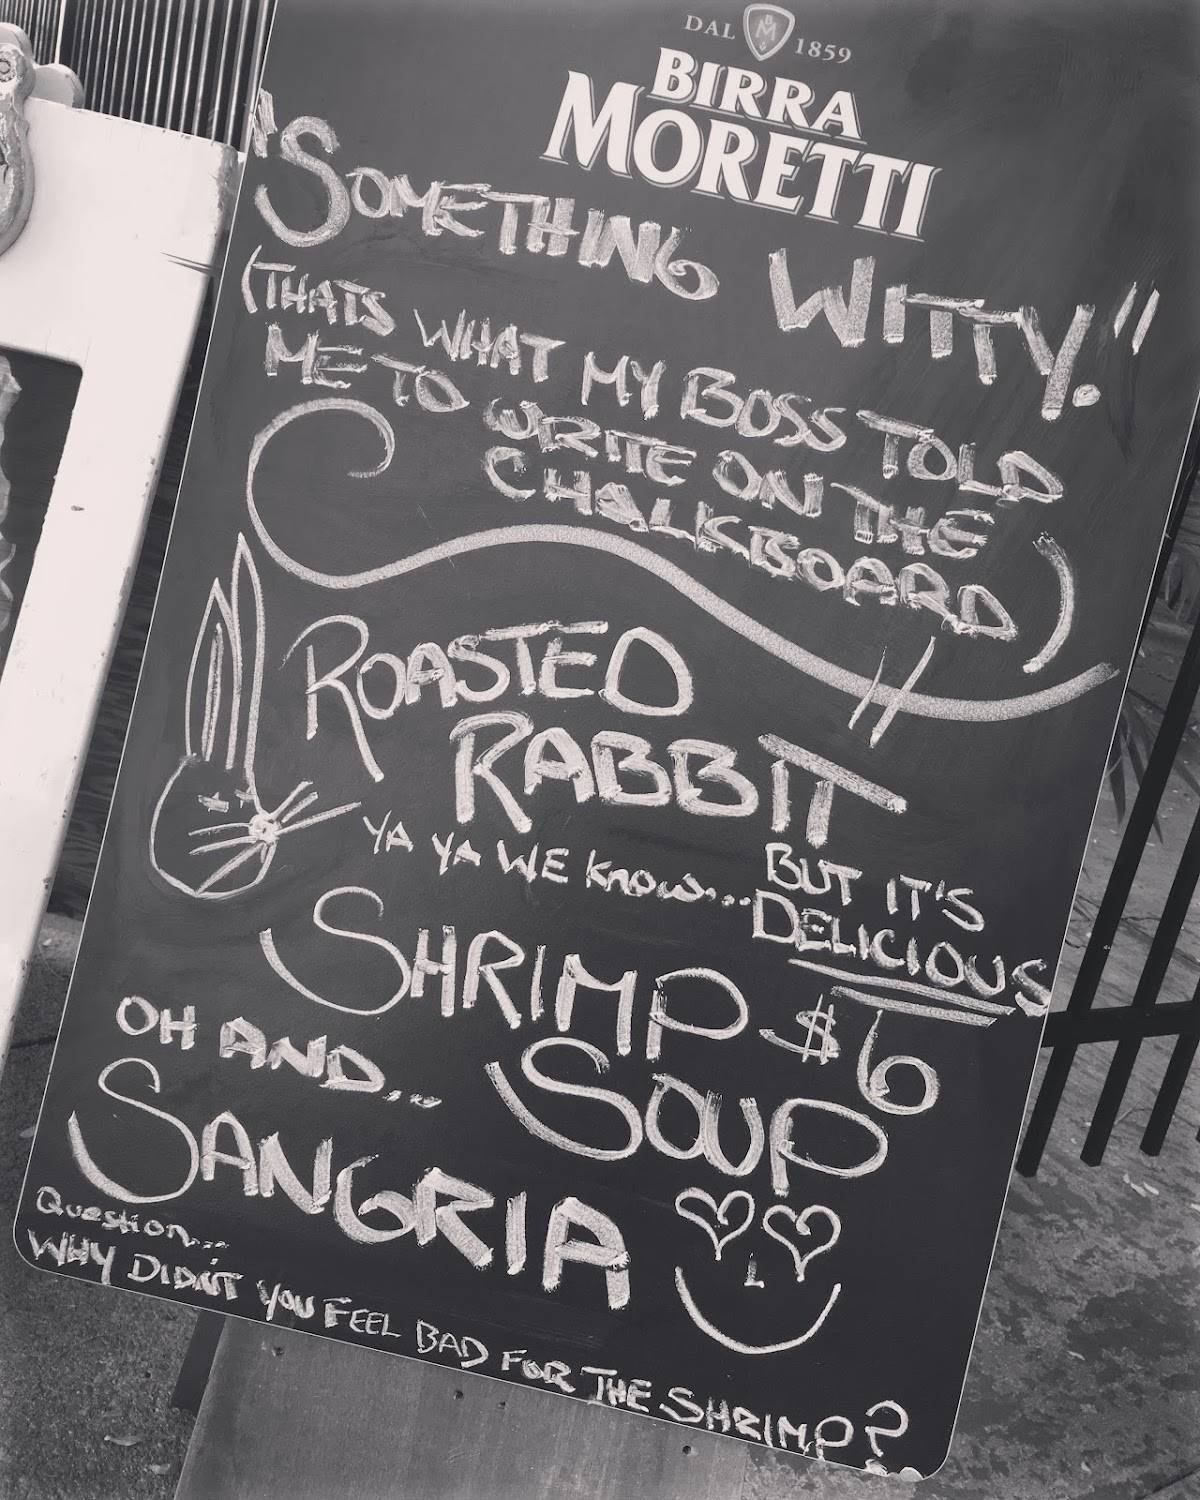 DAL BM 1859
BIRRA
MORETTI
"SOMETHING WITTY."
(THATS WHAT MY BOSS TOLD
ME TO WRITE ON THE
CHALKBOARD)
ROASTED
RABBIT
YA YA WE KNOW... BUT IT'S
DELICIOUS
SHRIMP $6
SOUP
OH AND...
SANGRIA
QUESTION...
WHY DIDN'T YOU FEEL BAD FOR THE SHRIMP?